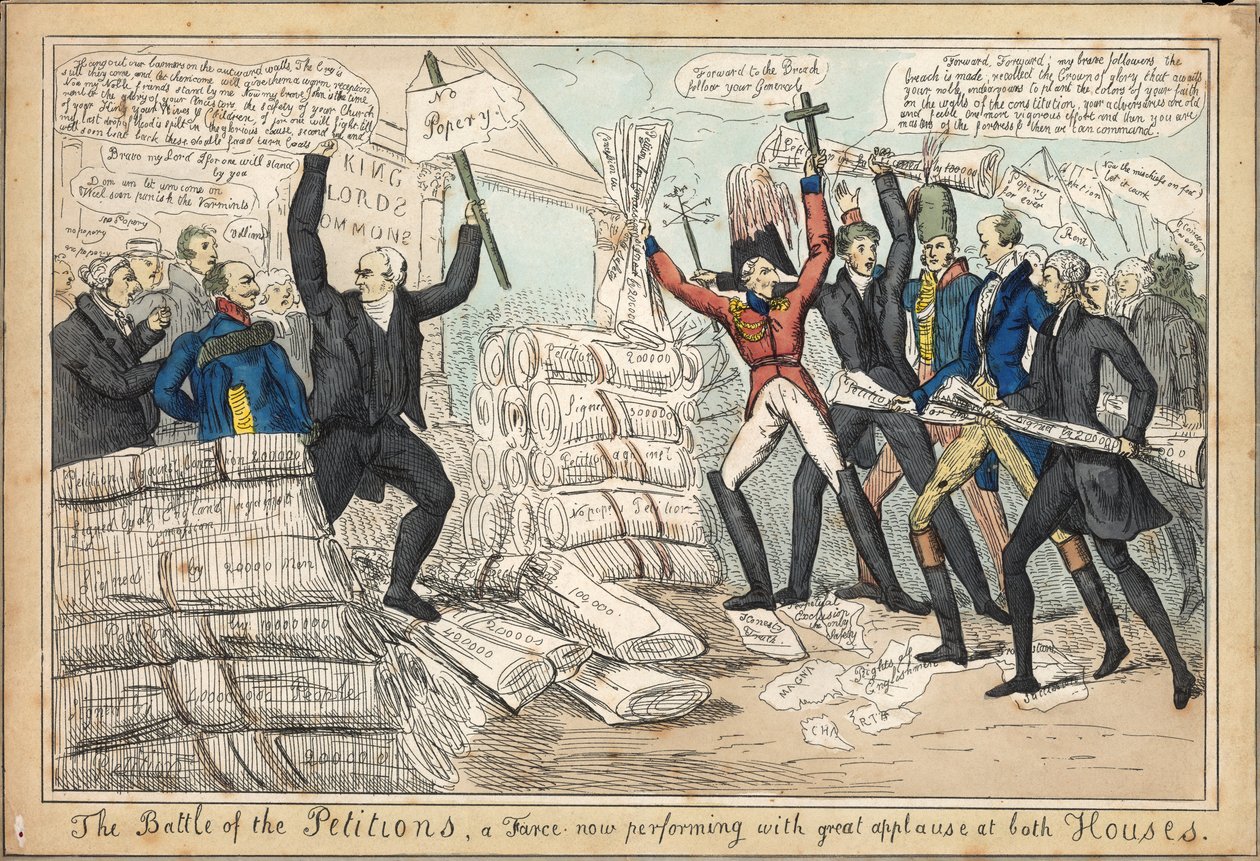 Hang out our banners on the outward walls The Cry is
still they come and let them come will give them a warm reception
Now my Noble friends stand by me Now my brave John is the time
the glory of your Ancestors the safety of your Church
of your King your Wives & Children I for one will fight till
my last drop of blood is spilt in the glorious cause, second me, and
well soon beat back these double faced turn Coats
Bravo my Lord I for one will stand
by you
Dom um let um come on
Weel soon punish the Varmints
no Popery
no popery
no popery
Villians
No
Popery!
KING
LORDS
COMMONS
Forward to the Breach
follow your General
Forward, Forward, my brave followers the
breach is made, recollect the Crown of glory that awaits
your noble endeavours to plant the colors of your faith
on the walls of the constitution, your adversaries are old
and feeble one more vigorous effort and then you are
masters of the fortress & then we can command.
Popery
for ever
Now the mischiefs on foot
let it work
Rent
by 100000
Petition
by 20000
Petition 200000
Signed 300000
Petition against
No popery Petition
Petition against 200000
Signed by all England against
Signed by 20000 Men
by 10000000
People
Petition 20000
100,000
20000
40,000
Petition for
by 20000
Honest
Truth
Perpetual
Exclusion
the only
Safety
MAGNA
CHA
RTA
Rights of
Englishmen
Protestant
The Battle of the Petitions, a Farce now performing with great applause at both Houses.